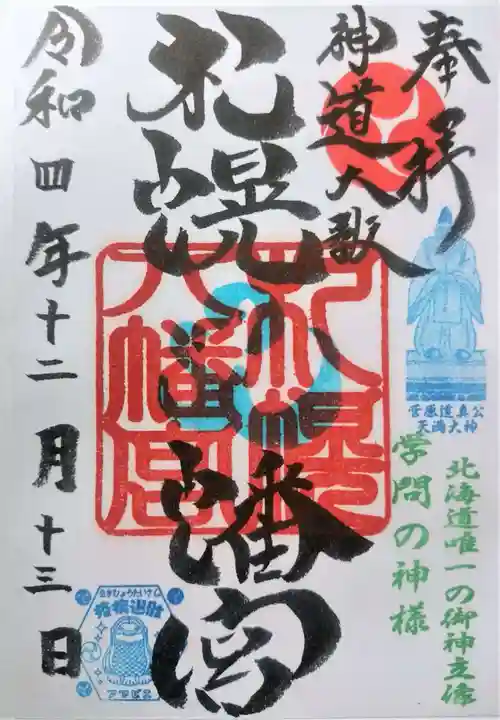 奉拝
神道大教
札幌八幡宮
札幌
八幡宮
菅原道真公
天満大神
学問の神様
北海道唯一の御神主像
令和四年十二月十三日
アマビエ